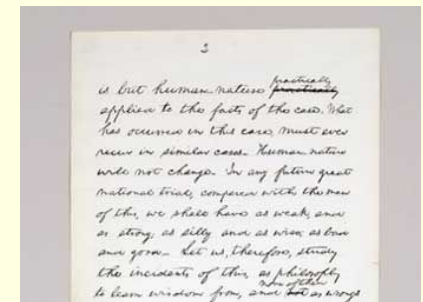 3
practically
is but human nature practically
applied to the facts of the case. What
has occurred in this case, must ever
recur in similar cases. Human nature
will not change. In any future great
national trial, compared with the men
of this, we shall have as weak, and
as strong; as silly and as wise; as bad
and good. Let us, therefore, study
the incidents of this, as philosophy
none of them
to learn wisdom from, and not as wrongs